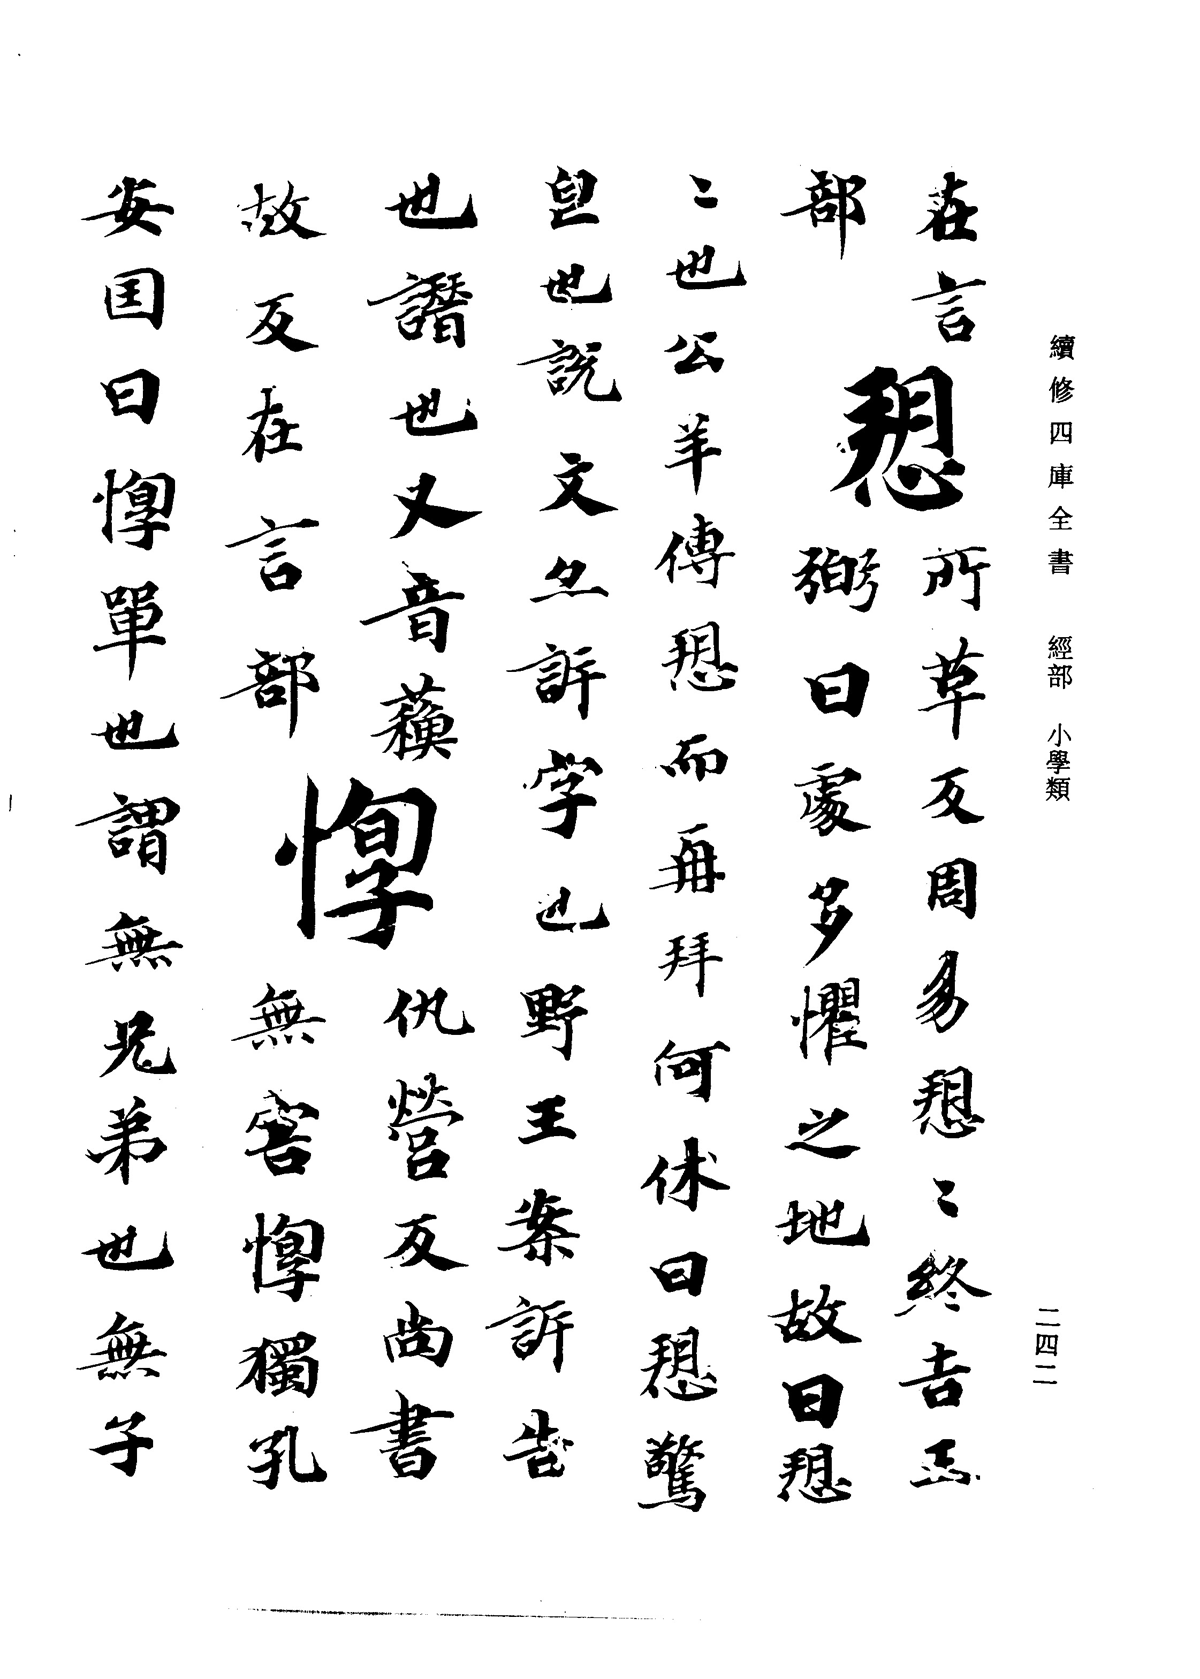 續修四庫全書 經部 小學類
二四二
在言
部
愬
所草反周易愬〻終吉王
弼曰處多懼之地故曰愬
〻也公羊傳愬而再拜何休曰愬驚
皃也説文亦訴字也野王案訴告
也譖也又音蘓
故反在言部
惸
仇營反尚書
無害惸獨孔
安国曰惸單也謂無兄弟也無子